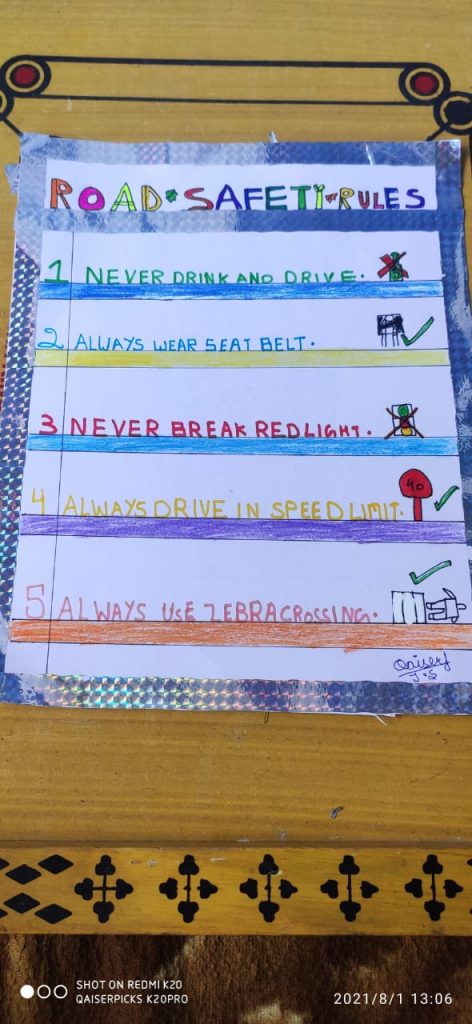 ROAD*SAFETY-RULES
1 NEVER DRINK AND DRIVE.
2 ALWAYS WEAR SEAT BELT.
3 NEVER BREAK REDLIGHT.
40
4 ALWAYS DRIVE IN SPEED LIMIT.
5 ALWAYS USE ZEBRACROSSING.
Qaiser
J.S
SHOT ON REDMI K20
QAISERPICKS K20PRO
2021/8/1 13:06